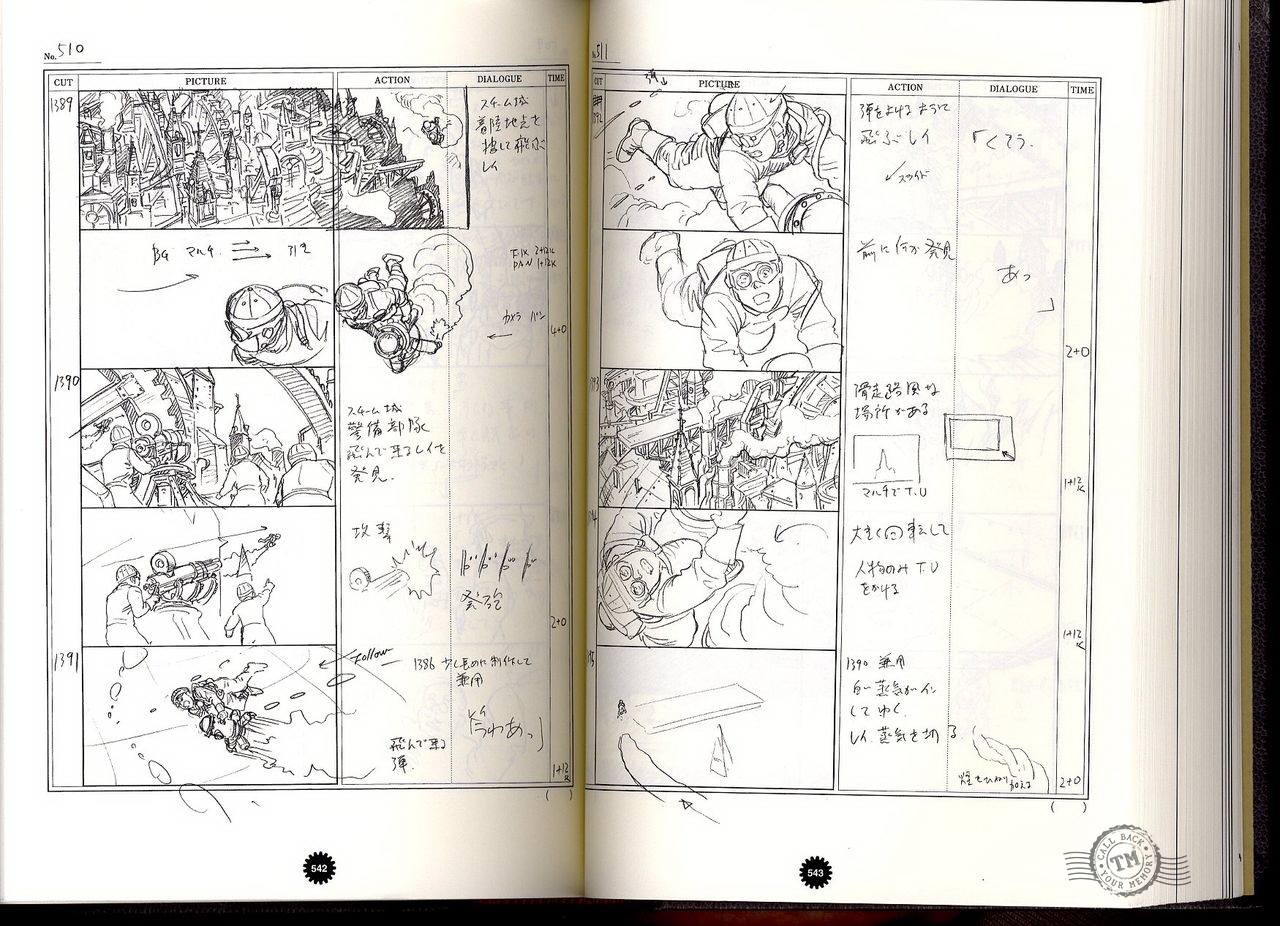 No. 510
CUT PICTURE ACTION DIALOGUE TIME
1389
スチーム城
着陸地点を
捜して飛ぶ
レイ
BG マルチ 引き
T.U 2+12K
PAN 1+12K
カメラ パン
4+0
1390
スチーム城
警備部隊
飛んで来るレイを
発見.
攻撃
発砲
2+0
1391
Follow
1386 少し長めに制作して
兼用
飛んで来る
弾.
1+12
K
( )
542
No. 511
CUT PICTURE ACTION DIALOGUE TIME
弾をよける ように
飛ぶレイ
「くそう.
スライド
前に何か発見
あっ
」
2+0
滑走路風な
場所がある
マルチで T.U
1+12
K
大きく回転して
人物のみ T.U
をかける
1+12
K
1390 兼用
白い蒸気がイン
してゆく.
レイ 蒸気を切る
2+0
( )
543
CALL BACK
TM
YOUR MEMORY